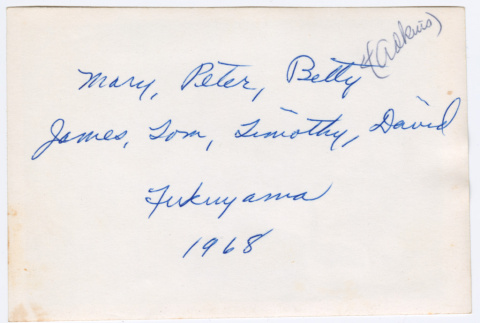 Mary, Peter, Betty *(Adkins)
James, Tom, Timothy, David
Fukuyama
1968